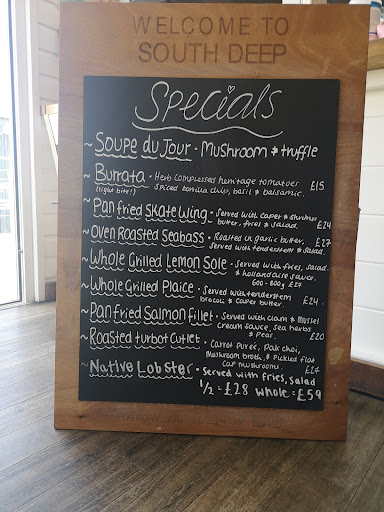 WELCOME TO
SOUTH DEEP
Specials
~ Soupe du Jour • Mushroom & truffle
~ Burrata • Herb compressed heritage tomatoes £15
(light bite!) Spiced tortilla chip, basil & balsamic.
~ Pan fried Skate Wing • Served with caper & shrimp
butter, fries & salad. £24
~ Oven Roasted Seabass • Roasted in garlic butter, £27
Served with tenderstem & salad.
~ Whole Grilled Lemon Sole • Served with fries, salad
& hollandaise sauce.
600 - 800g £27
~ Whole Grilled Plaice • Served with tenderstem £24
brocoli & caper butter.
~ Pan fried Salmon Fillet • Served with clam & mussel
cream sauce, sea herbs £20
& peas.
~ Roasted turbot Cutlet • Carrot pureé, Pak choi,
Mushroom broth, & Pickled flat £27
cup mushrooms.
~ Native Lobster • served with fries, salad
1/2 = £28 whole = £59